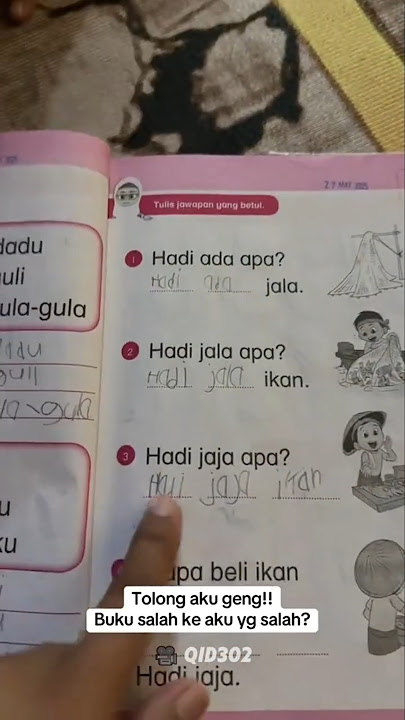 27 MAY 2025
Tulis jawapan yang betul.
dadu
uli
ula-gula
gula
u
u
1 Hadi ada apa?
Hadi ada jala.
2 Hadi jala apa?
Hadi jala ikan.
3 Hadi jaja apa?
jaja ikan
apa beli ikan
Tolong aku geng!!
Buku salah ke aku yg salah?
QID302
Hadi jaja.